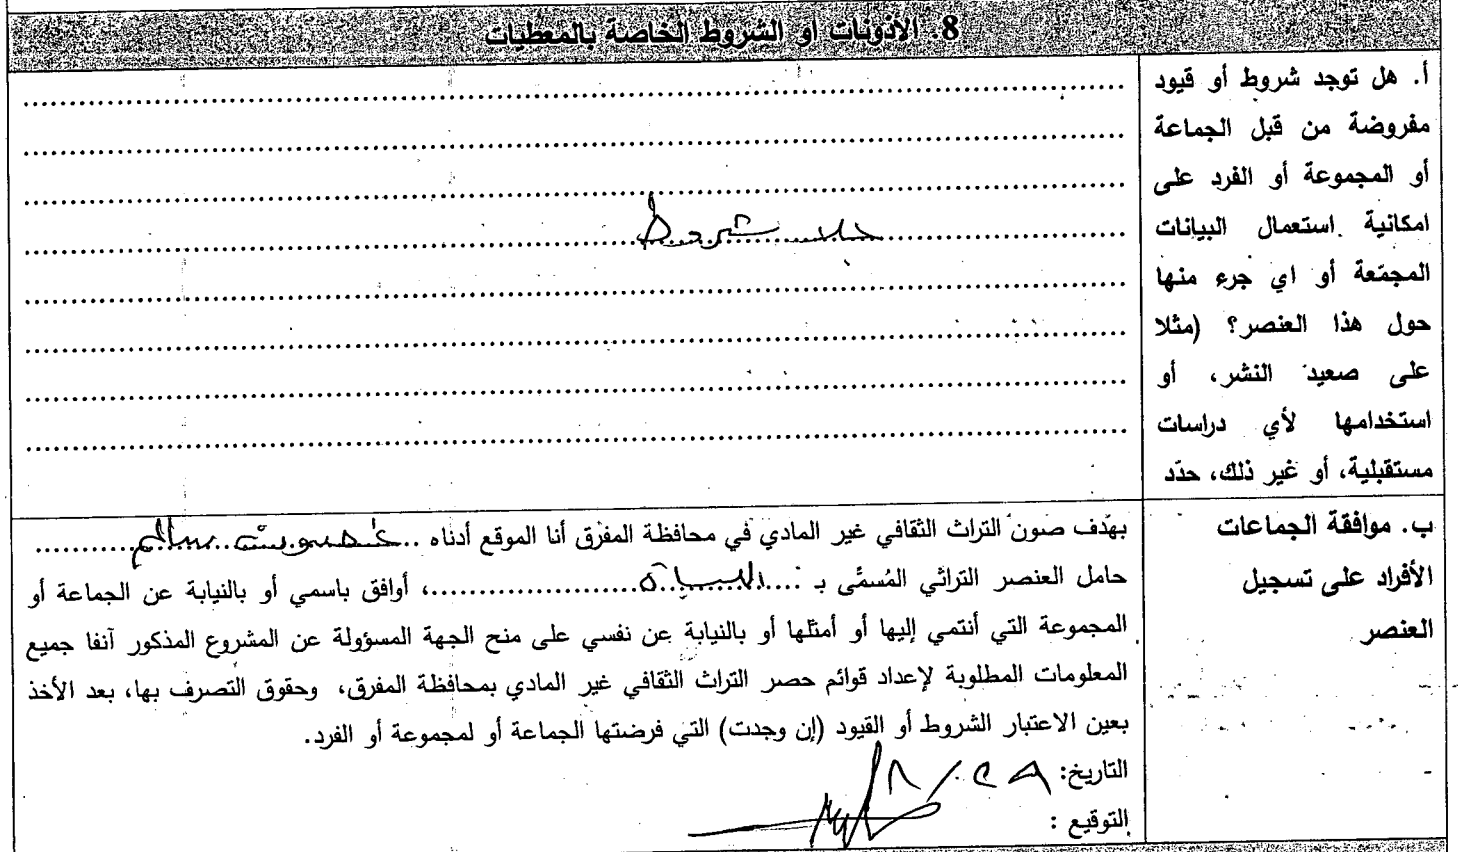 8. الأذونات او الشروط الخاصة بالمعطيات
أ. هل توجد شروط أو قيود
مفروضة من قبل الجماعة
أو المجموعة أو الفرد على
امكانية استعمال البيانات
المجمّعة أو اي جرء منها
حول هذا العنصر؟ (مثلا
على صعيد النشر، أو
استخدامها لأي دراسات
مستقبلية، أو غير ذلك، حدّد
بلا شروط
ب. موافقة الجماعات
الأفراد على تسجيل
العنصر
بهدف صون التراث الثقافي غير المادي في محافظة المفرق أنا الموقع أدناه .. سالم
حامل العنصر التراثي المُسمَّى بـ :....، أوافق باسمي أو بالنيابة عن الجماعة أو
المجموعة التي أنتمي إليها أو أمثلها أو بالنيابة عن نفسي على منح الجهة المسؤولة عن المشروع المذكور آنفا جميع
المعلومات المطلوبة لإعداد قوائم حصر التراث الثقافي غير المادي بمحافظة المفرق، وحقوق التصرف بها، بعد الأخذ
بعين الاعتبار الشروط أو القيود (إن وجدت) التي فرضتها الجماعة أو لمجموعة أو الفرد.
التاريخ:
التوقيع :